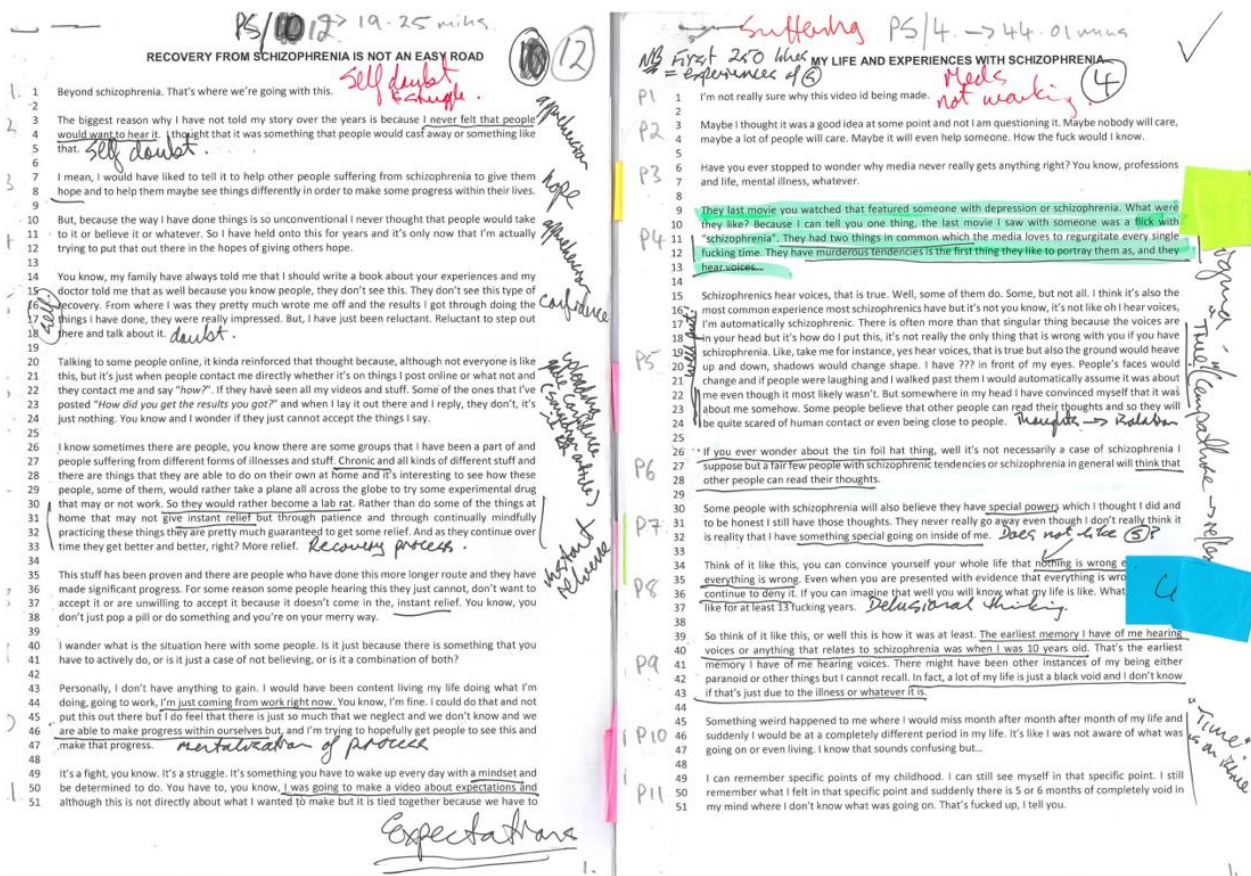 PS/12 → 19.25 mins.
RECOVERY FROM SCHIZOPHRENIA IS NOT AN EASY ROAD
12
Self doubt
& struggle.
1 Beyond schizophrenia. That's where we're going with this.
2
3 The biggest reason why I have not told my story over the years is because I never felt that people
4 would want to hear it. I thought that it was something that people would cast away or something like
5 that. Self doubt.
apprehension
6
7 I mean, I would have liked to tell it to help other people suffering from schizophrenia to give them
8 hope and to help them maybe see things differently in order to make some progress within their lives.
hope
9
10 But, because the way I have done things is so unconventional I never thought that people would take
11 to it or believe it or whatever. So I have held onto this for years and it's only now that I'm actually
12 trying to put that out there in the hopes of giving others hope.
apprehension
13
14 You know, my family have always told me that I should write a book about your experiences and my
15 doctor told me that as well because you know people, they don't see this. They don't see this type of
16 recovery. From where I was they pretty much wrote me off and the results I got through doing the
17 things I have done, they were really impressed. But, I have just been reluctant. Reluctant to step out
18 there and talk about it. doubt.
self
confidence
19
20 Talking to some people online, it kinda reinforced that thought because, although not everyone is like
21 this, but it's just when people contact me directly whether it's on things I post online or what not and
22 they contact me and say "how?". If they have seen all my videos and stuff. Some of the ones that I've
23 posted "How did you get the results you got?" and when I lay it out there and I reply, they don't, it's
24 just nothing. You know and I wonder if they just cannot accept the things I say.
25
26 I know sometimes there are people, you know there are some groups that I have been a part of and
27 people suffering from different forms of illnesses and stuff. Chronic and all kinds of different stuff and
28 there are things that they are able to do on their own at home and it's interesting to see how these
29 people, some of them, would rather take a plane all across the globe to try some experimental drug
30 that may or not work. So they would rather become a lab rat. Rather than do some of the things at
31 home that may not give instant relief but through patience and through continually mindfully
32 practicing these things they are pretty much guaranteed to get some relief. And as they continue over
33 time they get better and better, right? More relief. Recovery process.
instant
34
35 This stuff has been proven and there are people who have done this more longer route and they have
36 made significant progress. For some reason some people hearing this they just cannot, don't want to
37 accept it or are unwilling to accept it because it doesn't come in the, instant relief. You know, you
38 don't just pop a pill or do something and you're on your merry way.
39
40 I wander what is the situation here with some people. Is it just because there is something that you
41 have to actively do, or is it just a case of not believing, or is it a combination of both?
42
43 Personally, I don't have anything to gain. I would have been content living my life doing what I'm
44 doing, going to work, I'm just coming from work right now. You know, I'm fine. I could do that and not
45 put this out there but I do feel that there is just so much that we neglect and we don't know and we
46 are able to make progress within ourselves but, and I'm trying to hopefully get people to see this and
47 make that progress. mentalization of process
48
49 It's a fight, you know. It's a struggle. It's something you have to wake up every day with a mindset and
50 be determined to do. You have to, you know, I was going to make a video about expectations and
51 although this is not directly about what I wanted to make but it is tied together because we have to
Expectations
1.
Suffering PS/4. → 44.01 mins
NB First 250 lines
= experiences of S
MY LIFE AND EXPERIENCES WITH SCHIZOPHRENIA
4
Meds
not working.
P1 1 I'm not really sure why this video id being made.
2
P2 3 Maybe I thought it was a good idea at some point and not I am questioning it. Maybe nobody will care,
4 maybe a lot of people will care. Maybe it will even help someone. How the fuck would I know.
5
P3 6 Have you ever stopped to wonder why media never really gets anything right? You know, professions
7 and life, mental illness, whatever.
8
9 They last movie you watched that featured someone with depression or schizophrenia. What were
10 they like? Because I can tell you one thing, the last movie I saw with someone was a flick with
P4 11 "schizophrenia". They had two things in common which the media loves to regurgitate every single
12 fucking time. They have murderous tendencies is the first thing they like to portray them as, and they
13 hear voices...
14
15 Schizophrenics hear voices, that is true. Well, some of them do. Some, but not all. I think it's also the
16 most common experience most schizophrenics have but it's not you know, it's not like oh I hear voices,
17 I'm automatically schizophrenic. There is often more than that singular thing because the voices are
18 in your head but it's how do I put this, it's not really the only thing that is wrong with you if you have
P5 19 schizophrenia. Like, take me for instance, yes hear voices, that is true but also the ground would heave
20 up and down, shadows would change shape. I have ??? in front of my eyes. People's faces would
21 change and if people were laughing and I walked past them I would automatically assume it was about
22 me even though it most likely wasn't. But somewhere in my head I have convinced myself that it was
23 about me somehow. Some people believe that other people can read their thoughts and so they will
24 be quite scared of human contact or even being close to people. Thoughts →
well put!
25
26 If you ever wonder about the tin foil hat thing, well it's not necessarily a case of schizophrenia I
P6 27 suppose but a fair few people with schizophrenic tendencies or schizophrenia in general will think that
28 other people can read their thoughts.
29
30 Some people with schizophrenia will also believe they have special powers which I thought I did and
P7 31 to be honest I still have those thoughts. They never really go away even though I don't really think it
32 is reality that I have something special going on inside of me. Does not like S?
33
34 Think of it like this, you can convince yourself your whole life that nothing is wrong
P8 35 everything is wrong. Even when you are presented with evidence that everything is
36 continue to deny it. If you can imagine that well you will know what my life is like. What
37 like for at least 13 fucking years. Delusional thinking.
38
39 So think of it like this, or well this is how it was at least. The earliest memory I have of me hearing
40 voices or anything that relates to schizophrenia was when I was 10 years old. That's the earliest
P9 41 memory I have of me hearing voices. There might have been other instances of my being either
42 paranoid or other things but I cannot recall. In fact, a lot of my life is just a black void and I don't know
43 if that's just due to the illness or whatever it is.
44
45 Something weird happened to me where I would miss month after month after month of my life and
P10 46 suddenly I would be at a completely different period in my life. It's like I was not aware of what was
47 going on or even living. I know that sounds confusing but...
"Time"
is an issue
48
49 I can remember specific points of my childhood. I can still see myself in that specific point. I still
P11 50 remember what I felt in that specific point and suddenly there is 5 or 6 months of completely void in
51 my mind where I don't know what was going on. That's fucked up, I tell you.
1.